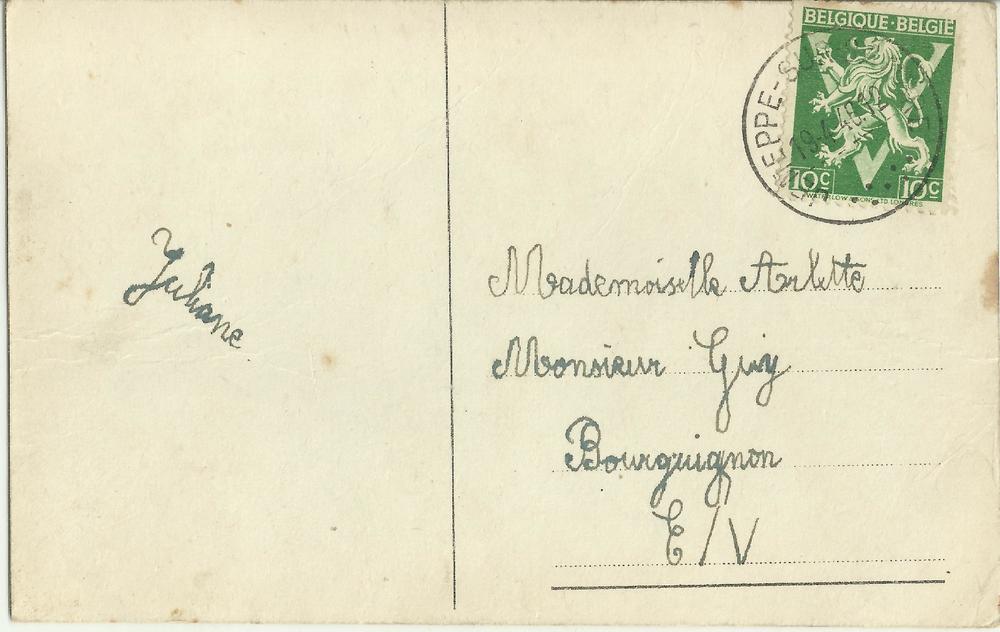 BELGIQUE-BELGIË
10c 10c
WATERLOW & SONS LTD LONDRES
JEMEPPE-SUR
19-4-46-12
Juliane
Mademoiselle Arlette
Monsieur Guy
Bourguignon
E/V